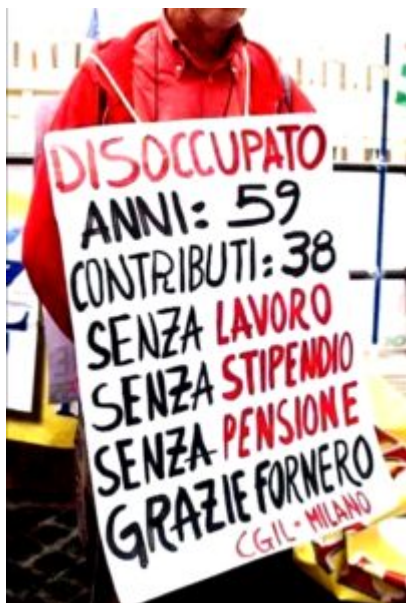 DISOCCUPATO
ANNI: 59
CONTRIBUTI: 38
SENZA LAVORO
SENZA STIPENDIO
SENZA PENSIONE
GRAZIE FORNERO
CGIL - MILANO